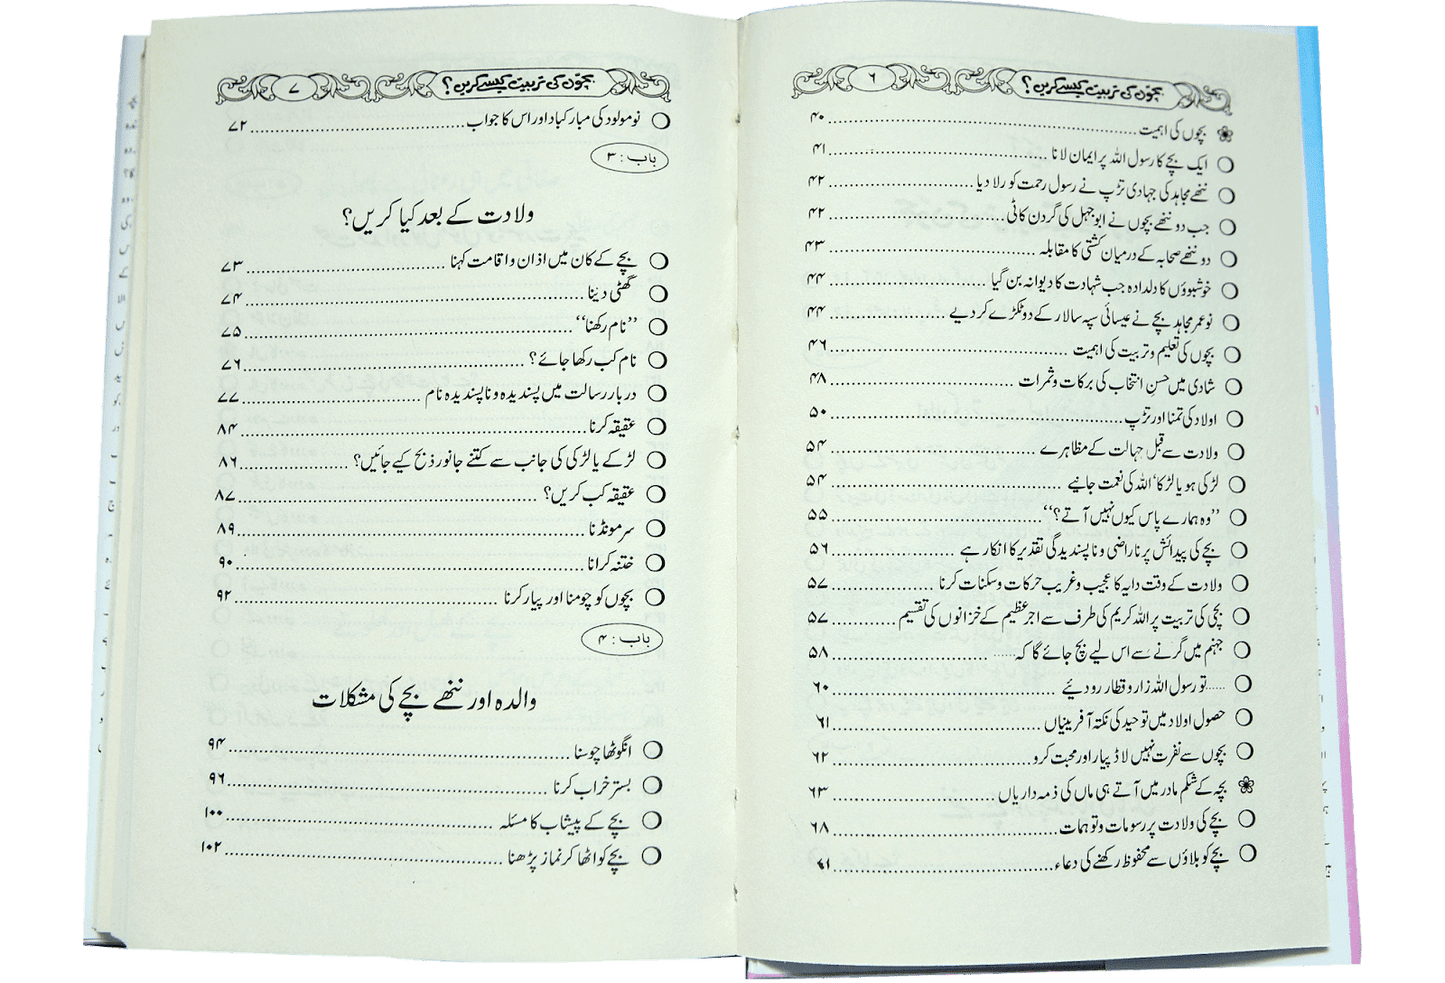 بچوں کی تربیت کیسے کریں؟ ۶
بچوں کی اہمیت ۴۰
ایک بچے کا رسول اللہ پر ایمان لانا ۴۱
ننھے مجاہد کی جہادی تڑپ نے رسول رحمت کو رلا دیا ۴۲
جب دو ننھے بچوں نے ابوجہل کی گردن کاٹی ۴۲
دو ننھے صحابہ کے درمیان کشتی کا مقابلہ ۴۳
خوشبوؤں کا دلدادہ جب شہادت کا دیوانہ بن گیا ۴۴
نوعمر مجاہد بچے نے عیسائی سپہ سالار کے دو ٹکڑے کر دیے ۴۴
بچوں کی تعلیم و تربیت کی اہمیت ۴۶
شادی میں حسنِ انتخاب کی برکات و ثمرات ۴۸
اولاد کی تمنا اور تڑپ ۵۰
ولادت سے قبل جہالت کے مظاہرے ۵۴
لڑکی ہو یا لڑکا، اللہ کی نعمت جانیے ۵۴
”وہ ہمارے پاس کیوں نہیں آتے؟“ ۵۵
بچے کی پیدائش پر ناراضی و ناپسندیدگی تقدیر کا انکار ہے ۵۶
ولادت کے وقت دایہ کا عجیب و غریب حرکات و سکنات کرنا ۵۷
بچی کی تربیت پر اللہ کریم کی طرف سے اجر عظیم کے خزانوں کی تقسیم ۵۷
جہنم میں گرنے سے اس لیے بچ جائے گا کہ...... ۵۸
......تو رسول اللہ زار و قطار رو دیئے ۶۰
حصول اولاد میں توحید کی نکتہ آفرینیاں ۶۱
بچوں سے نفرت نہیں لاڈ پیار اور محبت کرو ۶۲
بچہ کے شکم مادر میں آتے ہی ماں کی ذمہ داریاں ۶۳
بچے کی ولادت پر رسومات و توہمات ۶۸
بچے کو بلاؤں سے محفوظ رکھنے کی دعاء ۷۱
بچوں کی تربیت کیسے کریں؟ ۷
نومولود کی مبارکباد اور اس کا جواب ۷۲
باب : ۳
ولادت کے بعد کیا کریں؟
بچے کے کان میں اذان و اقامت کہنا ۷۳
گھٹی دینا ۷۴
”نام رکھنا“ ۷۵
نام کب رکھا جائے؟ ۷۶
دربار رسالت میں پسندیدہ و ناپسندیدہ نام ۷۷
عقیقہ کرنا ۸۴
لڑکے یا لڑکی کی جانب سے کتنے جانور ذبح کیے جائیں؟ ۸۶
عقیقہ کب کریں؟ ۸۷
سر مونڈنا ۸۹
ختنہ کرانا ۹۰
بچوں کو چومنا اور پیار کرنا ۹۲
باب : ۴
والدہ اور ننھے بچے کی مشکلات
انگوٹھا چوسنا ۹۴
بستر خراب کرنا ۹۶
بچے کے پیشاب کا مسئلہ ۱۰۰
بچے کو اٹھا کر نماز پڑھنا ۱۰۲